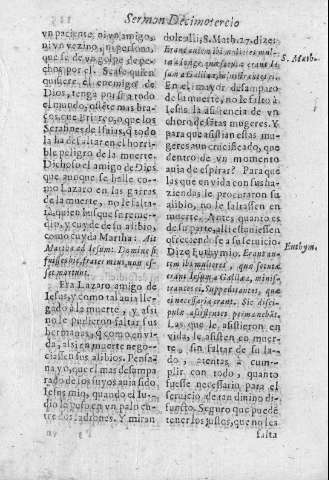 Sermon Decimotercio
vn pariente, ni vn amigo,
ni vn vezino, ni persona,
que se dè vn golpe de pe-
chos por el. Acaso quien
quisiere, el enemigo de
Dios, tenga por si a todo
el mundo,
que Briareo, o que los
Serafines de Isaias, q̃ todo
la ha de faltar en el horri-
ble peligro de la muerte.
Dichoso el amigo de Dios
que aunque se halle co-
mo Lazaro en las garras
de la muerte, no le falta-
rà, quien busque su reme-
dio, y cuyde de su alibio,
como cuyda Martha: Ait
Martha ad Iesum: Domine si
fuisses hic, frater meus non es-
set mortuus.
Era Lazaro amigo de
Iesus, y como tal auia lle-
gado à la muerte, y assi
no le pudieron faltar sus
hermanas, q̃ como en vi-
da, assi en muerte nego-
ciassen sus alibios. Pensa-
na yo, que el mas desampa-
rado de los suyos auia sido
Iesus mio, quando el Iu-
dio le puso en vn palo en-
tre dos ladrones. Y miran
dole alli, S. Math. 27. dize:
Erant autem ibi mulieres mul-
tæ à longe, quæ secutæ erant Ie-
sum a Galilæa, ministrantes ei.
En el mayor desamparo
de la muerte, no le faltò à
Iesus la asistencia de vn
choro de sãtas mugeres. Y
para que asistian estas mu-
geres a vn crucificado, que
dentro de vn momento
auia de espirar? Para que
las que en vida con sus ha-
ziendas le procuraron su
alibio, no le faltassen en
muerte. Antes quanto es
de su parte, alli estauiessen
ofreciendose a su seruicio.
Dize Euthymio. Erant au-
tem ibi mulieres, quæ secutæ
erant Iesum a Galilæa, minis-
trantes ei, Suppeditantes, quæ
ei necessaria erant. Sic disci-
pulæ assistentes permanebãt.
Las que le asistieron en
vida, le asisten en muer-
te, sin faltar de su la-
do, atentas à cum-
plir con todo, quanto
fuesse necessario para el
seruicio de tan diuino di-
functo. Seguro que puedẽ
tener los justos, que no les
falta
S. Math.
Euthym.